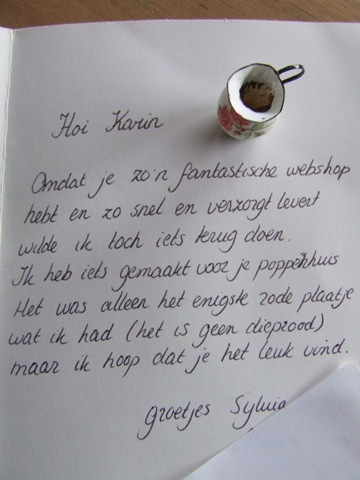 Hoi Karin
Omdat je zo'n fantastische webshop
hebt en zo snel en verzorgt levert
wilde ik toch iets terug doen.
Ik heb iets gemaakt voor je poppenhuis
Het was alleen het enigste rode plaatje
wat ik had (het is geen dieprood)
maar ik hoop dat je het leuk vind.
groetjes Sylvia